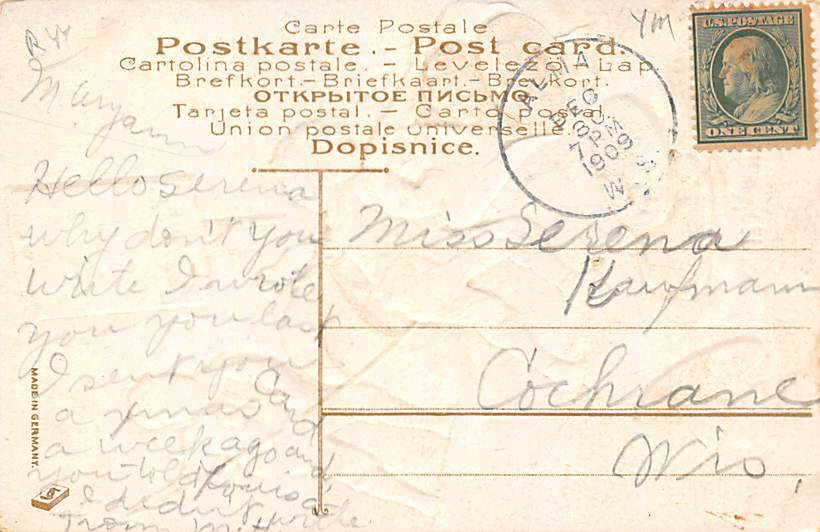 Carte Postale.
Postkarte.- Post card.
Cartolina postale. - Levelező-Lap
Brefkort.- Briefkaart.- Brevkort.
ОТКРЫТОЕ ПИСЬМО.
Tarjeta postal. - Cartao postal.
Union postale universelle.
Dopisnice.
U.S. POSTAGE
ONE CENT
ALMA
DEC
30
7 PM
1909
WIS.
YM
R 44
Maryann
Hello Serena
why don't you
write I wrote
you you last
I sent you
a xmas Card
a week ago and
you told Louisa
I didn't write.
From M. H
Miss Serena
Kaufmann
Cochrane
Wis,
MADE IN GERMANY.